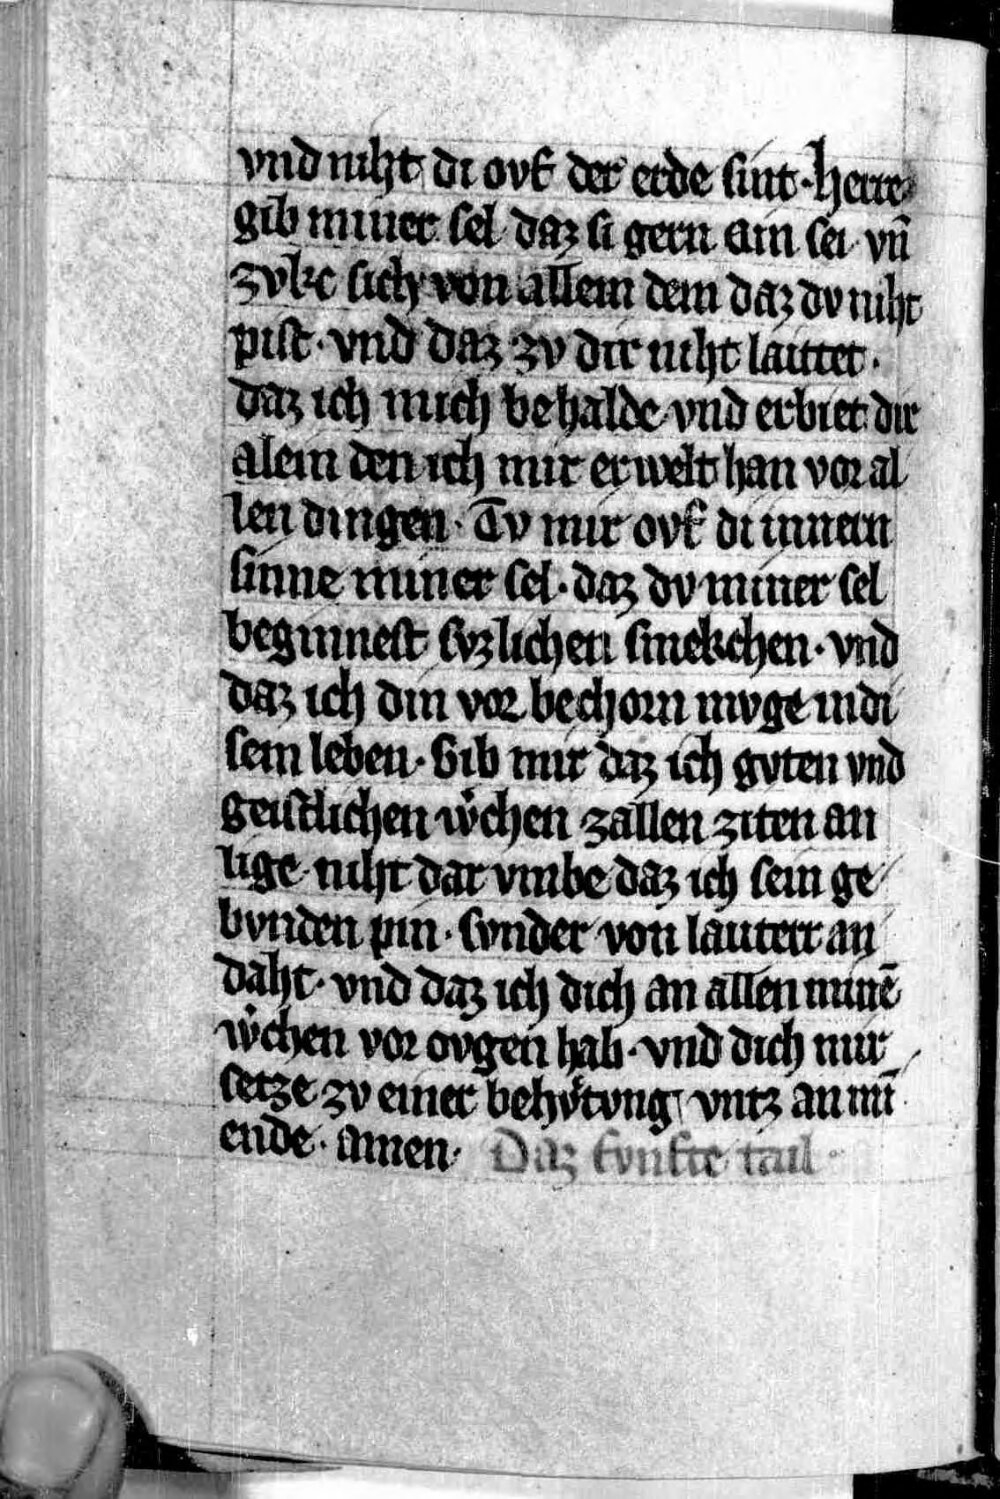 vnd niht di ovf der erde sint · herre
gib miner sel daz si gern ain sei vn̄
zvke sich von allem dem daz dv niht
pist · vnd daz zv dir niht lauttet ·
daz ich mich behalde vnd erbiet dir
alein den ich mir erwelt han vor al
len dingen · Tv mir ovf di innern
sinne miner sel · daz dv miner sel
beginnest svzlichen smekchen · vnd
daz ich din vor bechorn mvge in di
sem leben · Gib mir daz ich gvten vnd
geistlichen wͦchen zallen ziten an
lige niht dar vmbe daz ich sein ge
bvnden pin · svnder von lauterr an
daht · vnd daz ich dich an allen minē
wͦchen vor ovgen hab · vnd dich mir
setze zv einer behvͤtvng vntz an mī
ende · amen · Daz fvnfte tail ·